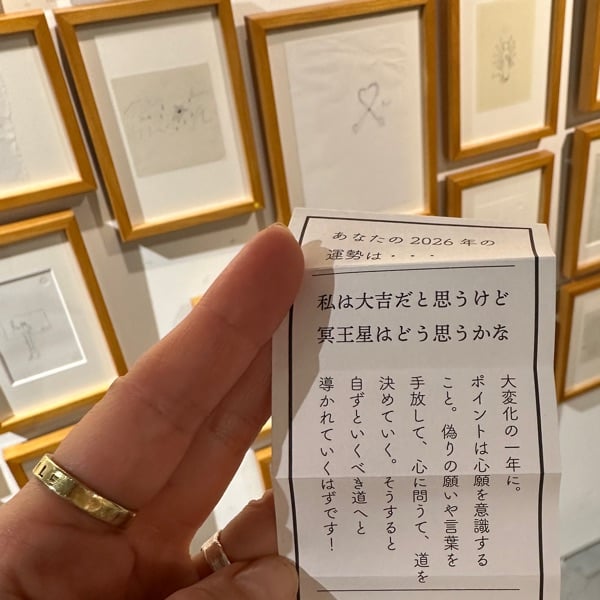 あなたの 2026 年の
運勢は・・・
私は大吉だと思うけど
冥王星はどう思うかな
大変化の一年に。
ポイントは心願を意識する
こと。偽りの願いや言葉を
手放して、心に問うて、道を
決めていく。そうすると
自ずといくべき道へと
導かれていくはずです!
LE